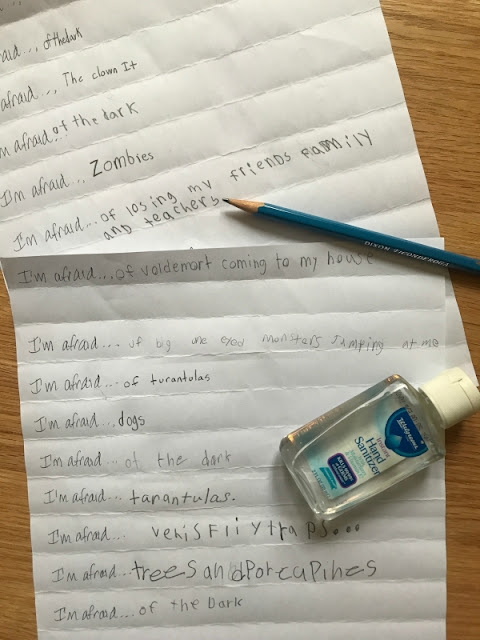 afraid... of the dark
afraid..., The clown It
I'm afraid. of the dark
I'm afraid... Zombies
I'm afraid... of losing my friends family
and teachers.
I'm afraid... of voldemort coming to my house
I'm afraid... of big one eyed monsters Jumping at me
I'm afraid... of turantulas
I'm afraid... dogs
I'm afraid... of the dark
I'm afraid... tarantulas.
I'm afraid... venisfliiytraps...
I'm afraid... trees and porcupines
I'm afraid... of the Dark
DIXON TICONDEROGA
Walgreens
Instant
Hand
Sanitizer